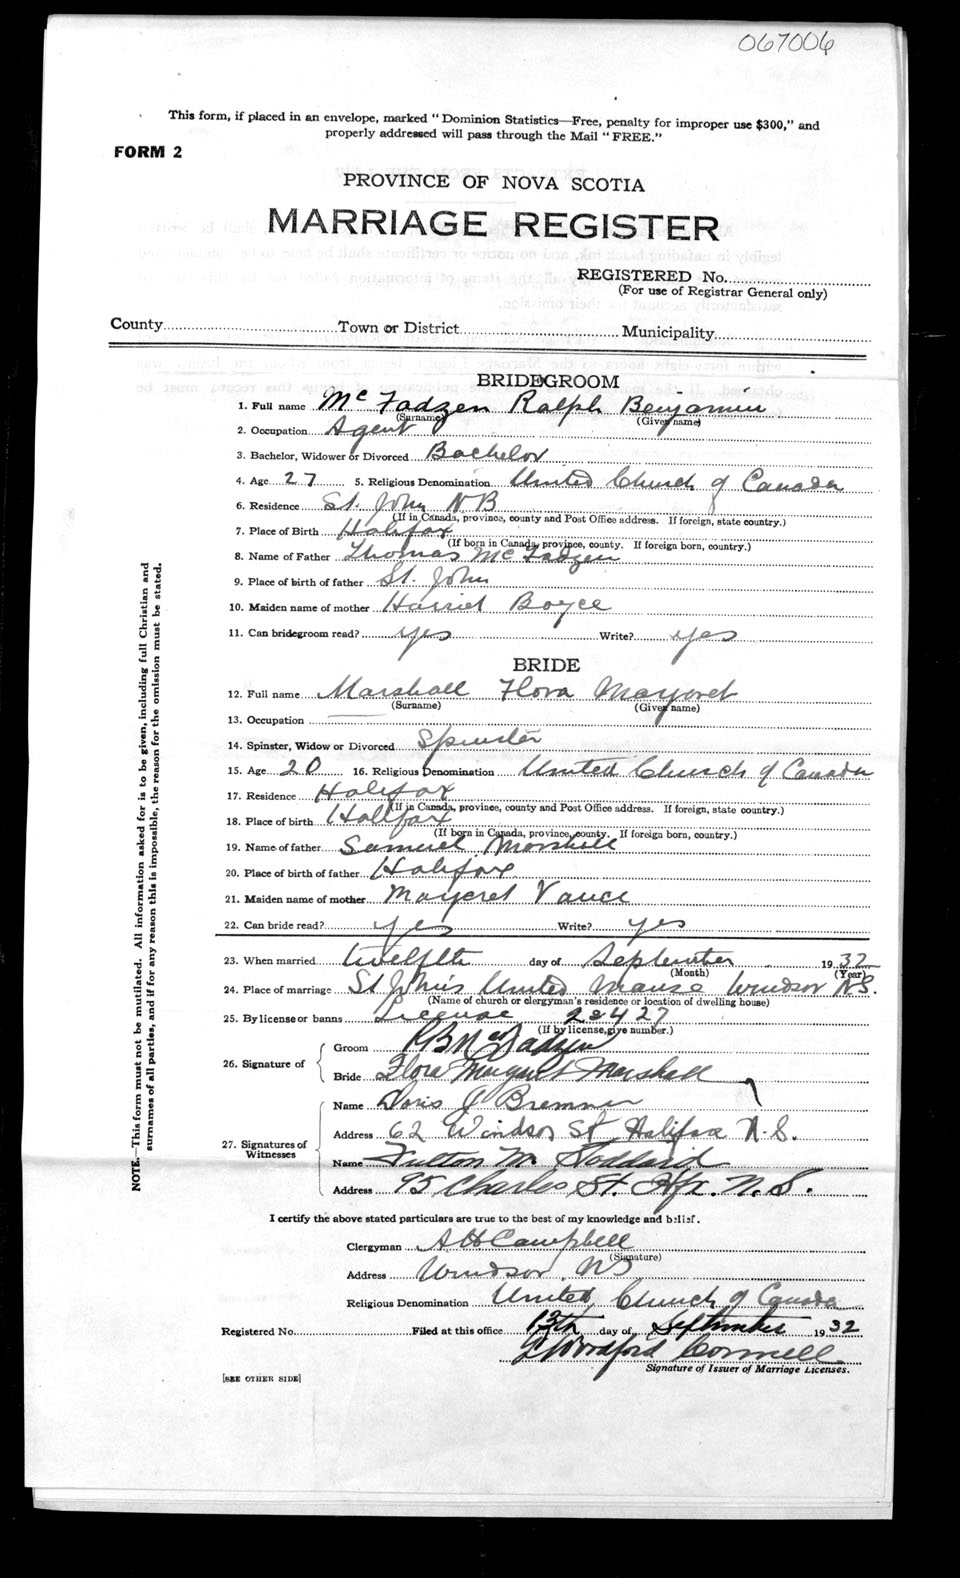 067006
This form, if placed in an envelope, marked "Dominion Statistics—Free, penalty for improper use $300," and
properly addressed will pass through the Mail "FREE."
FORM 2
PROVINCE OF NOVA SCOTIA
MARRIAGE REGISTER
REGISTERED No.
(For use of Registrar General only)
County Town or District Municipality
BRIDEGROOM
1. Full name McFadzen Ralph Benjamin
(Surname) (Given name)
2. Occupation Agent
3. Bachelor, Widower or Divorced Bachelor
4. Age 27 5. Religious Denomination United Church of Canada
6. Residence St. John NB
(If in Canada, province, county and Post Office address. If foreign, state country.)
7. Place of Birth Halifax
(If born in Canada, province, county. If foreign born, country.)
8. Name of Father Thomas McFadzen
9. Place of birth of father St. John
10. Maiden name of mother Harriet Boyce
11. Can bridegroom read? yes Write? yes
BRIDE
12. Full name Marshall Flora Margaret
(Surname) (Given name)
13. Occupation
14. Spinster, Widow or Divorced Spinster
15. Age 20 16. Religious Denomination United Church of Canada
17. Residence Halifax
(If in Canada, province, county and Post Office address. If foreign, state country.)
18. Place of birth Halifax
(If born in Canada, province, county. If foreign born, country.)
19. Name of father Samuel Marshall
20. Place of birth of father Halifax
21. Maiden name of mother Margaret Vance
22. Can bride read? yes Write? yes
23. When married twelfth day of September 1932
(Month) (Year)
24. Place of marriage St John's United Manse Windsor N.S.
(Name of church or clergyman's residence or location of dwelling house)
25. By license or banns License 28427
(If by license, give number.)
26. Signature of Groom RB McFadzen
Bride Flora Margaret Marshall
27. Signatures of Witnesses
Name Doris J Bremner
Address 62 Windsor St Halifax N.S.
Name Fulton M Stoddard
Address 95 Charles St. Hfx. N.S.
I certify the above stated particulars are true to the best of my knowledge and belief.
Clergyman AH Campbell
(Signature)
Address Windsor NS
Religious Denomination United Church of Canada
Registered No. Filed at this office 13th day of September 1932
Cornnell
Signature of Issuer of Marriage Licenses.
[SEE OTHER SIDE]
NOTE.—This form must not be mutilated. All information asked for is to be given, including full Christian and
surnames of all parties, and if for any reason this is impossible, the reason for the omission must be stated.